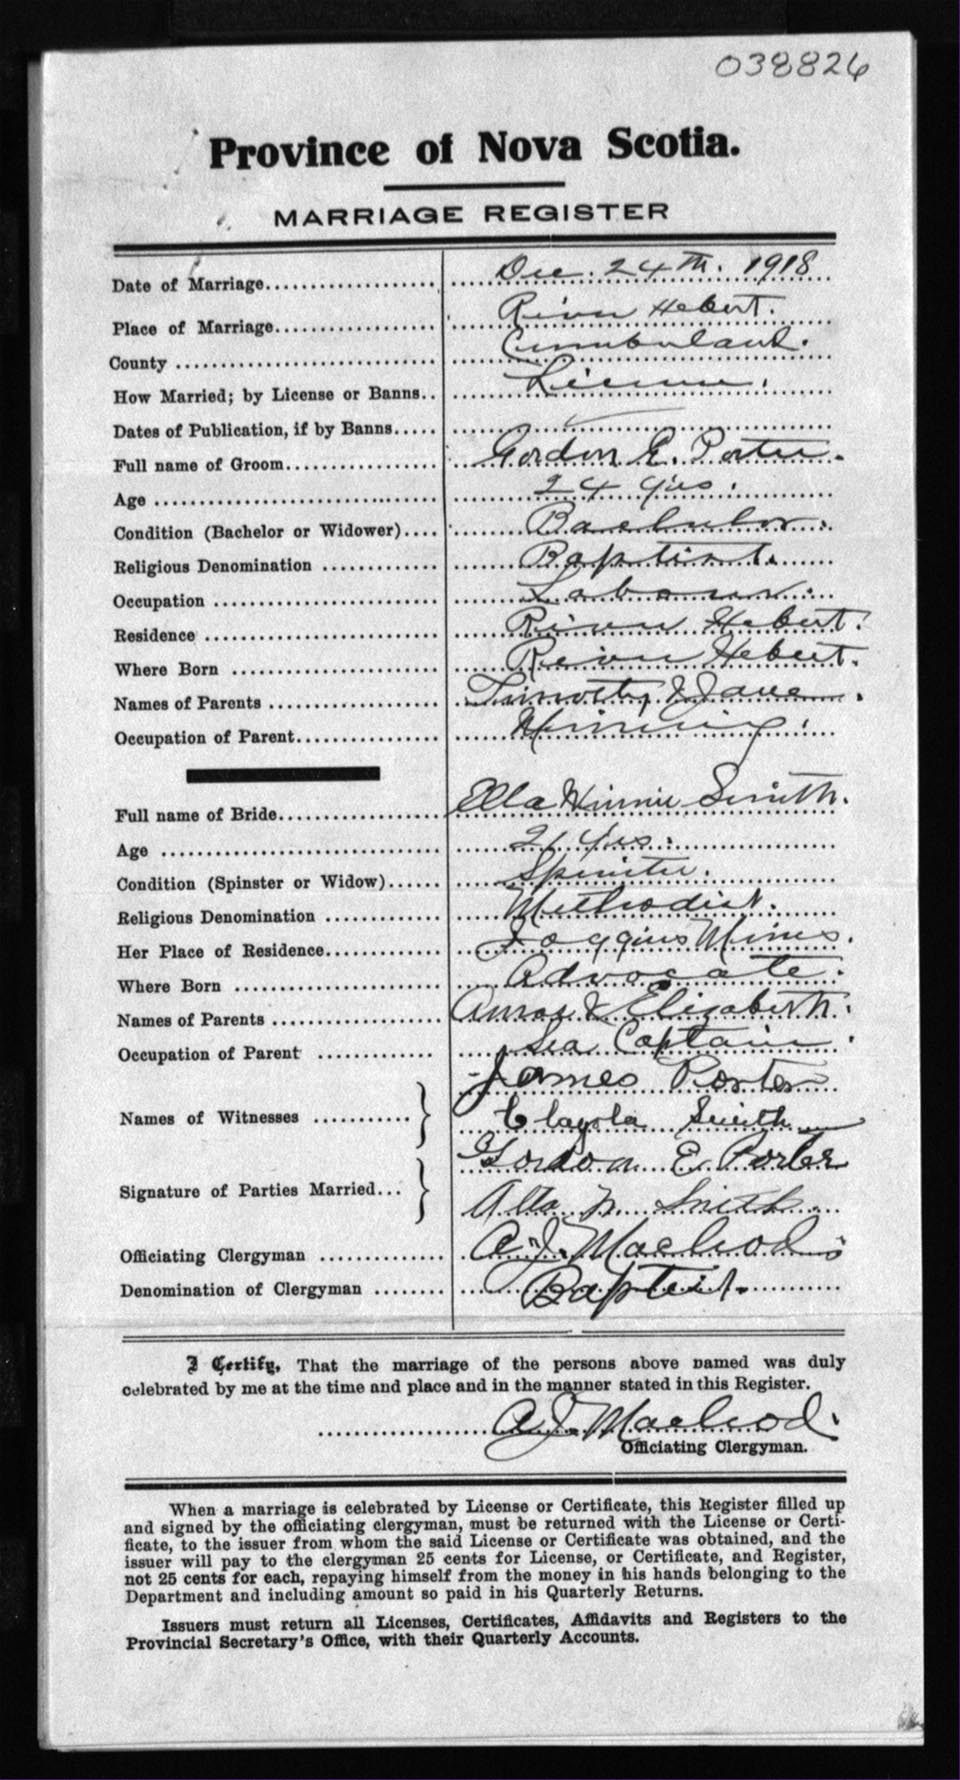 038826
Province of Nova Scotia.
MARRIAGE REGISTER
Date of Marriage Dec. 24th. 1918
Place of Marriage River Hebert.
County Cumberland.
How Married; by License or Banns.. License.
Dates of Publication, if by Banns
Full name of Groom Gordon E. Porter.
Age 24 yrs.
Condition (Bachelor or Widower) Bachelor.
Religious Denomination Baptist.
Occupation Labourer.
Residence River Hebert.
Where Born River Hebert.
Names of Parents Timothy & Jane.
Occupation of Parent Mining.
Full name of Bride Minnie Smith.
Age 21 yrs.
Condition (Spinster or Widow) Spinster.
Religious Denomination Methodist.
Her Place of Residence Joggins Mines.
Where Born Advocate.
Names of Parents & Elizabeth.
Occupation of Parent Sea Captain.
Names of Witnesses James Porter
Smith
Signature of Parties Married... Gordon E. Porter
M. Smith
Officiating Clergyman A.J. Macleod
Denomination of Clergyman Baptist.
I Certify, That the marriage of the persons above named was duly
celebrated by me at the time and place and in the manner stated in this Register.
A.J. Macleod.
Officiating Clergyman.
When a marriage is celebrated by License or Certificate, this Register filled up
and signed by the officiating clergyman, must be returned with the License or Certi-
ficate, to the issuer from whom the said License or Certificate was obtained, and the
issuer will pay to the clergyman 25 cents for License, or Certificate, and Register,
not 25 cents for each, repaying himself from the money in his hands belonging to the
Department and including amount so paid in his Quarterly Returns.
Issuers must return all Licenses, Certificates, Affidavits and Registers to the
Provincial Secretary's Office, with their Quarterly Accounts.